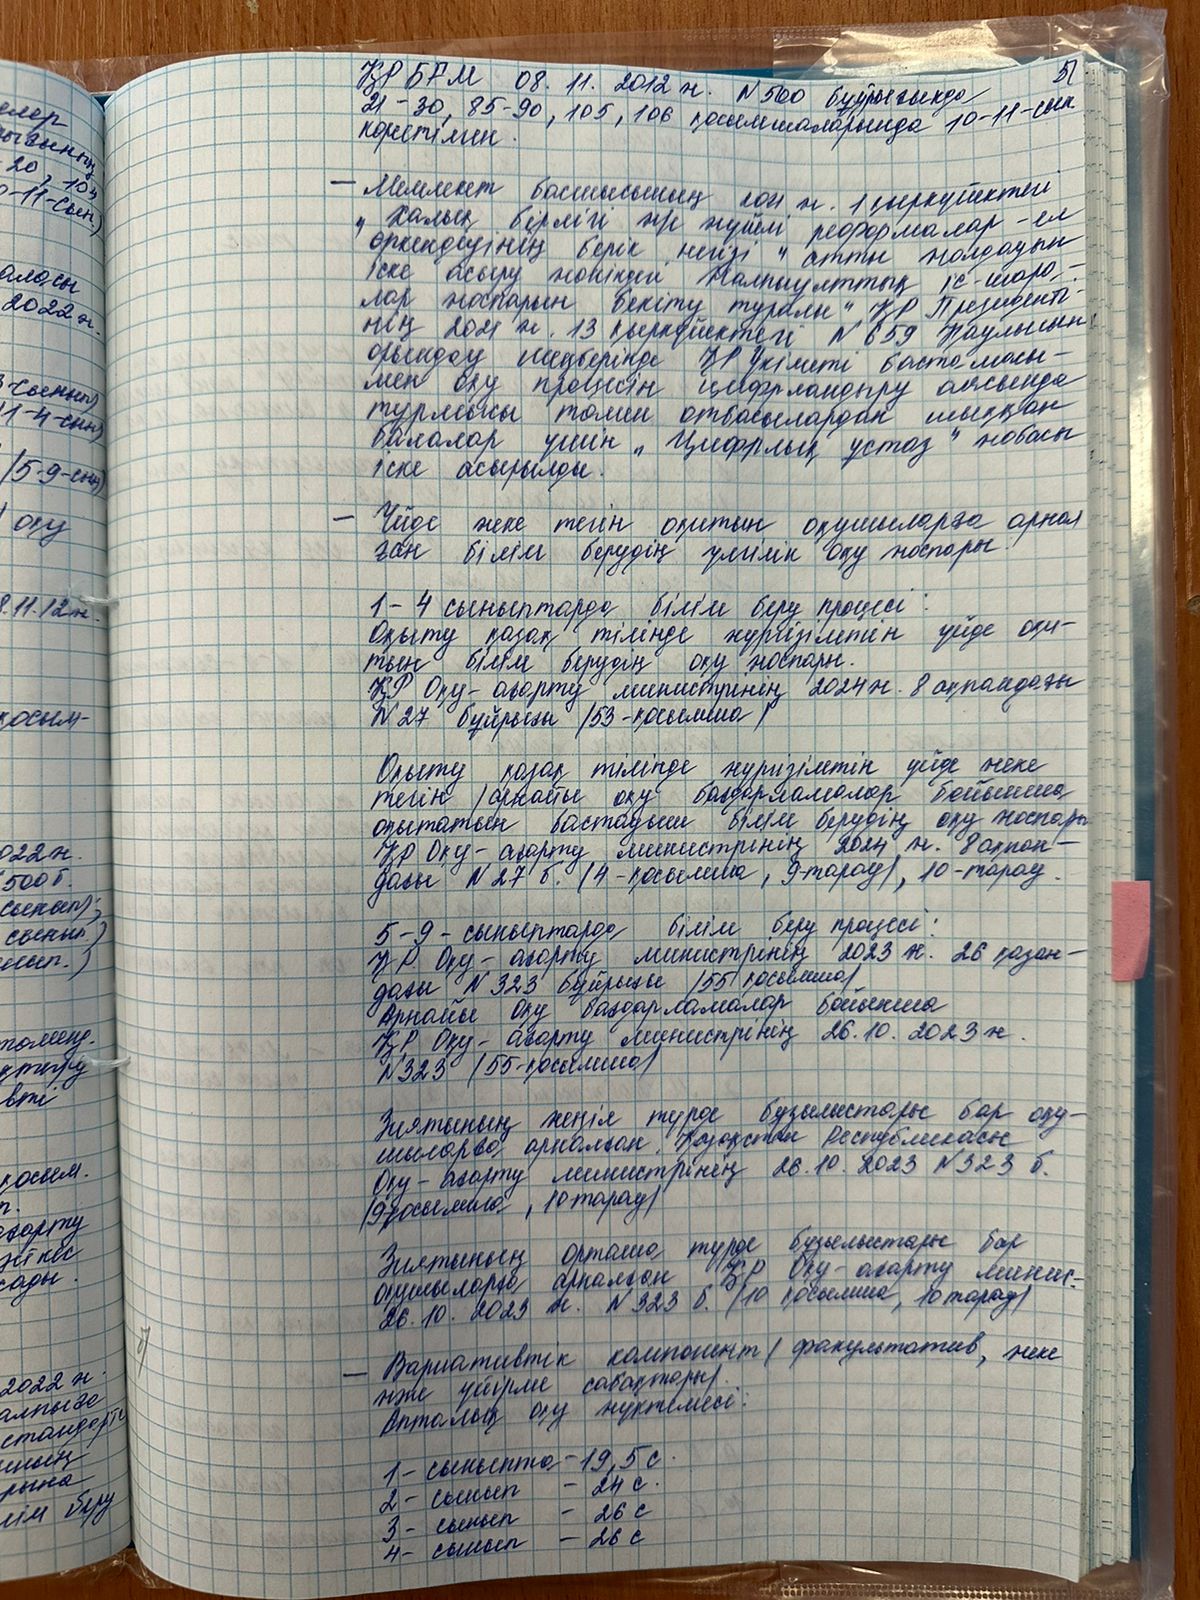 51
ҚР БҒМ 08. 11. 2012 ж. N 500 бұйрығында
21-30, 85-90, 105, 106 қосымшаларында 10-11-сын
көрсетілген.
– Мемлекет басшысының 2021 ж. 1 қыркүйектегі
„Халық бірлігі ж/е жүйелі реформалар – ел
өркендеуінің берік негізі" атты жолдауын
іске асыру жөніндегі Жалпыұлттық іс-шара-
лар жоспарын бекіту туралы" ҚР Президенті-
нің 2021 ж. 13 қыркүйектегі N 659 Жарлығын
орындау шеңберінде ҚР Үкіметі бастамасы-
мен оқу процесін цифрландыру аясында
тұрмысы төмен отбасылардан шыққан
балалар үшін „Цифрлық ұстаз" жобасы
іске асырылды.
– Үйде жеке тегін оқитын оқушыларға арнал
ған білім берудің үлгілік оқу жоспары.
1-4 сыныптарда білім беру процесі:
Оқыту қазақ тілінде жүргізілетін үйде оқи-
тын білім берудің оқу жоспары.
ҚР Оқу-ағарту министрінің 2024 ж. 8 ақпандағы
N 27 бұйрығы /53-қосымша/
Оқыту қазақ тілінде жүргізілетін үйде жеке
тегін /арнайы оқу бағдарламалар бойынша
оқытатын бастауыш білім берудің оқу жоспары
ҚР Оқу-ағарту министрінің 2024 ж. 8 ақпан-
дағы N 27 б. /4-қосымша, 9-тарау/, 10-тарау.
5-9-сыныптарда білім беру процесі:
ҚР Оқу-ағарту министрінің 2023 ж. 26 қазан-
дағы N 323 бұйрығы /55 қосымша/
Арнайы оқу бағдарламалар бойынша
ҚР Оқу-ағарту министрінің 26.10. 2023 ж.
N 323 /55-қосымша/
Зиятының жеңіл түрде бұзылыстары бар оқу-
шыларға арналған Қазақстан Республикасы
Оқу-ағарту министрінің 26.10. 2023 N 323 б.
/9 қосымша, 10 тарау/
Зиятының орташа түрде бұзылыстары бар
оқушыларға арналған ҚР Оқу-ағарту минис-
26.10. 2023 ж. N 323 б. /10 қосымша, 10 тарау/
– Вариативтік компонент /факультатив, жеке
нже үйірме сабақтары/.
Апталық оқу жүктемесі:
1-сыныпта – 19,5 с.
2-сынып – 24 с.
3-сынып – 26 с
4-сынып – 26 с